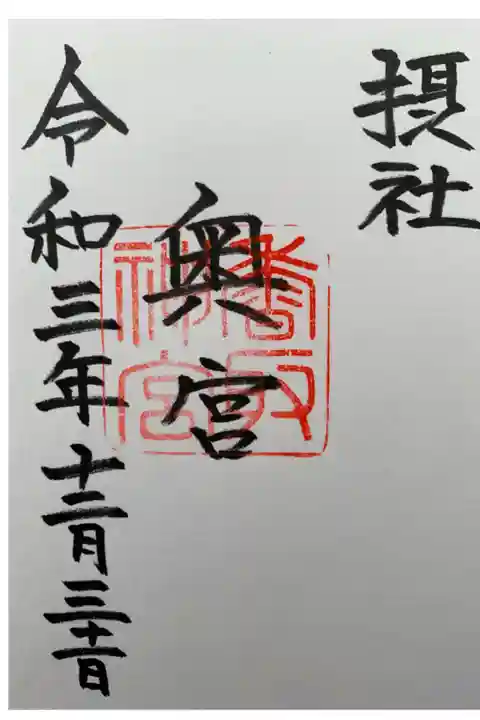 摂社
奥宮
香取
神宮
令和三年十二月三十一日